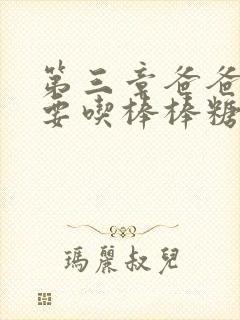 第三章爸爸
要喫棒棒糖
瑪麗叔兒